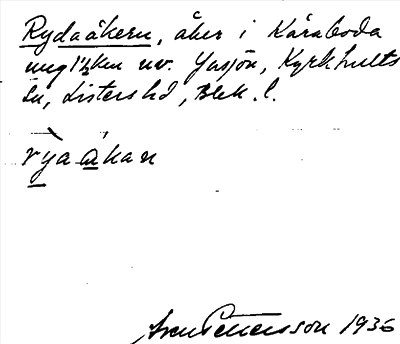 Rydaåkern, åker i Kåraboda
ung 1½ km nv. Yasjön, Kyrkhults
sn, Listers hd, Blek. l.
rya åkan
Sven Pettersson 1936